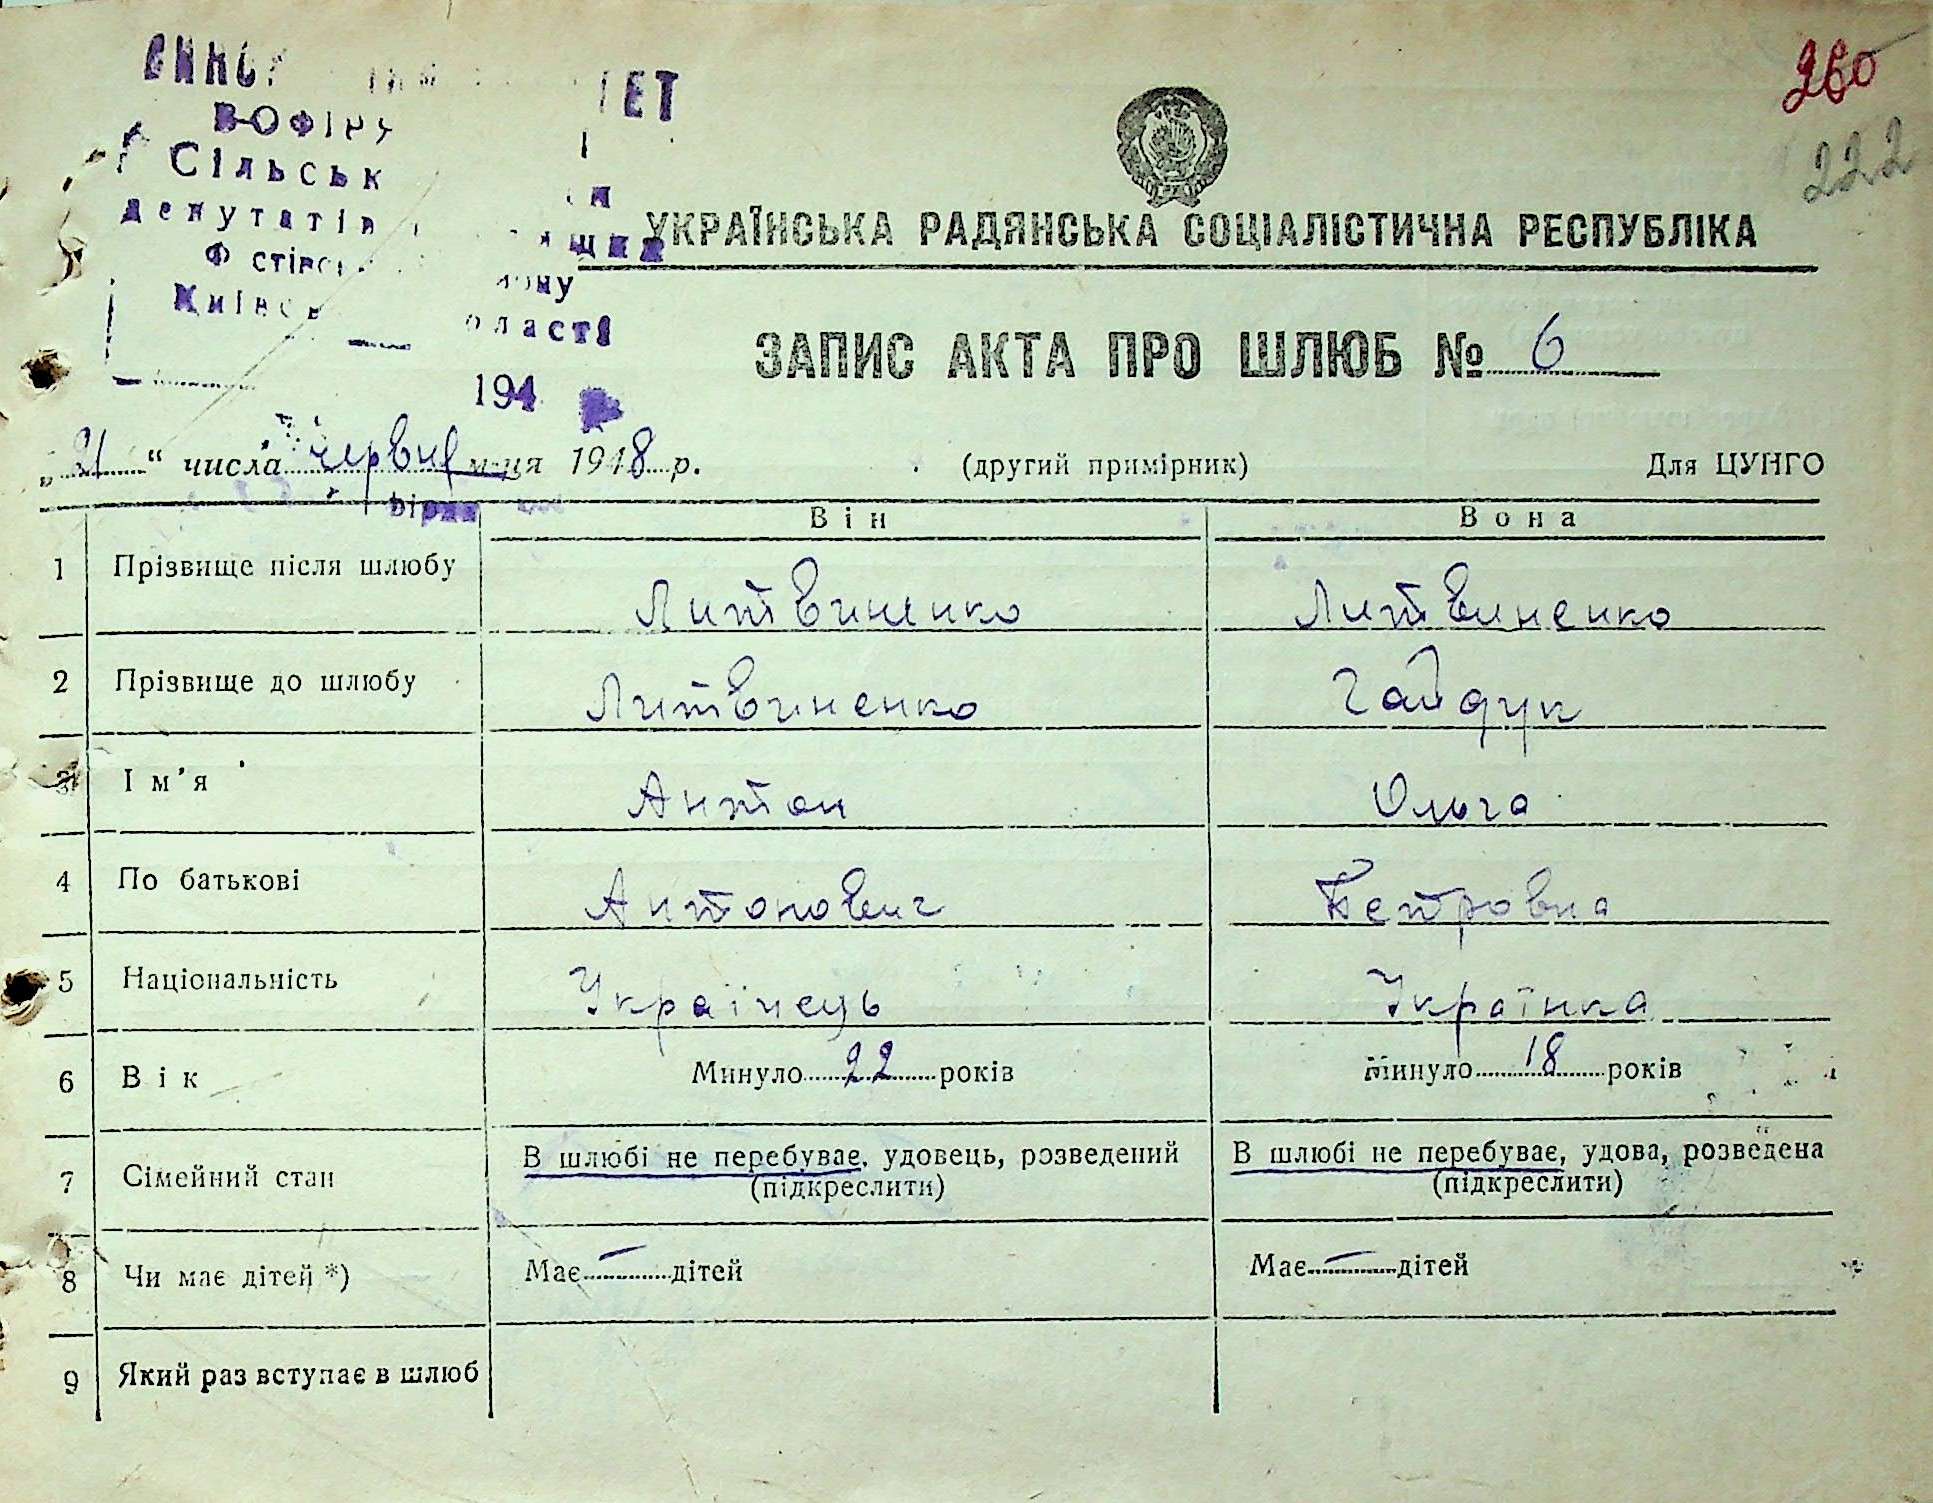 260
222
ЕТ
Сільськ
депутатів
Київс
ласті
194
УКРАЇНСЬКА РАДЯНСЬКА СОЦІАЛІСТИЧНА РЕСПУБЛІКА
ЗАПИС АКТА ПРО ШЛЮБ № 6
„21“ числа червня м-ця 1948 р. (другий примірник) Для ЦУНГО
Він Вона
1 Прізвище після шлюбу Литвиненко Литвиненко
2 Прізвище до шлюбу Литвиненко Гайдук
3 Ім'я Антон Ольга
4 По батькові Антонович Петровна
5 Національність Українець Українка
6 Вік Минуло 22 років Минуло 18 років
7 Сімейний стан В шлюбі не перебуває, удовець, розведений (підкреслити) В шлюбі не перебуває, удова, розведена (підкреслити)
8 Чи має дітей *) Має — дітей Має — дітей
9 Який раз вступає в шлюб